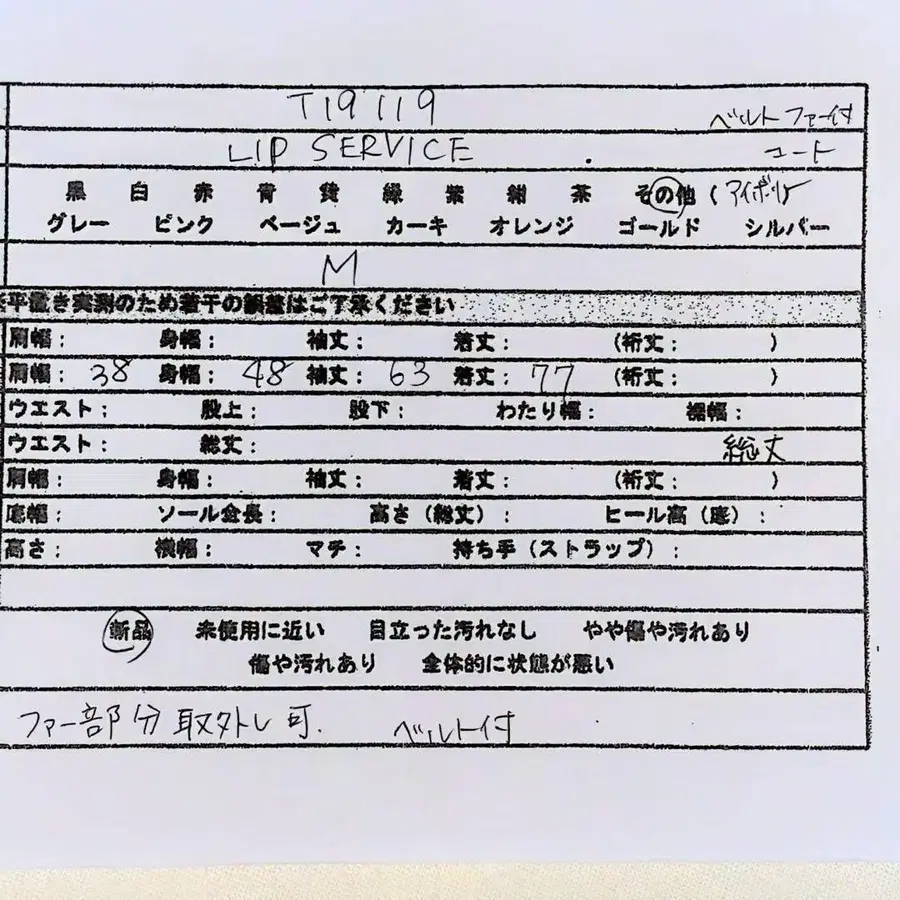 T19119
ベルト ファー付
LIP SERVICE
コート
黒 白 赤 青 緑 紫 紺 茶 その他 (アイボリー
グレー ピンク ベージュ カーキ オレンジ ゴールド シルバー
M
平置き実測のため若干の誤差はご了承ください
肩幅： 身幅： 袖丈： 着丈： (裄丈： )
肩幅： 38 身幅： 48 袖丈： 63 着丈： 77 (裄丈： )
ウエスト： 股上： 股下： わたり幅： 裾幅：
ウエスト： 総丈： 総丈
肩幅： 身幅： 袖丈： 着丈： (裄丈： )
底幅： ソール全長： 高さ（総丈）： ヒール高（底）：
高さ： 横幅： マチ： 持ち手（ストラップ）：
新品 未使用に近い 目立った汚れなし やや傷や汚れあり
傷や汚れあり 全体的に状態が悪い
ファー部分 取外し可. ベルト付